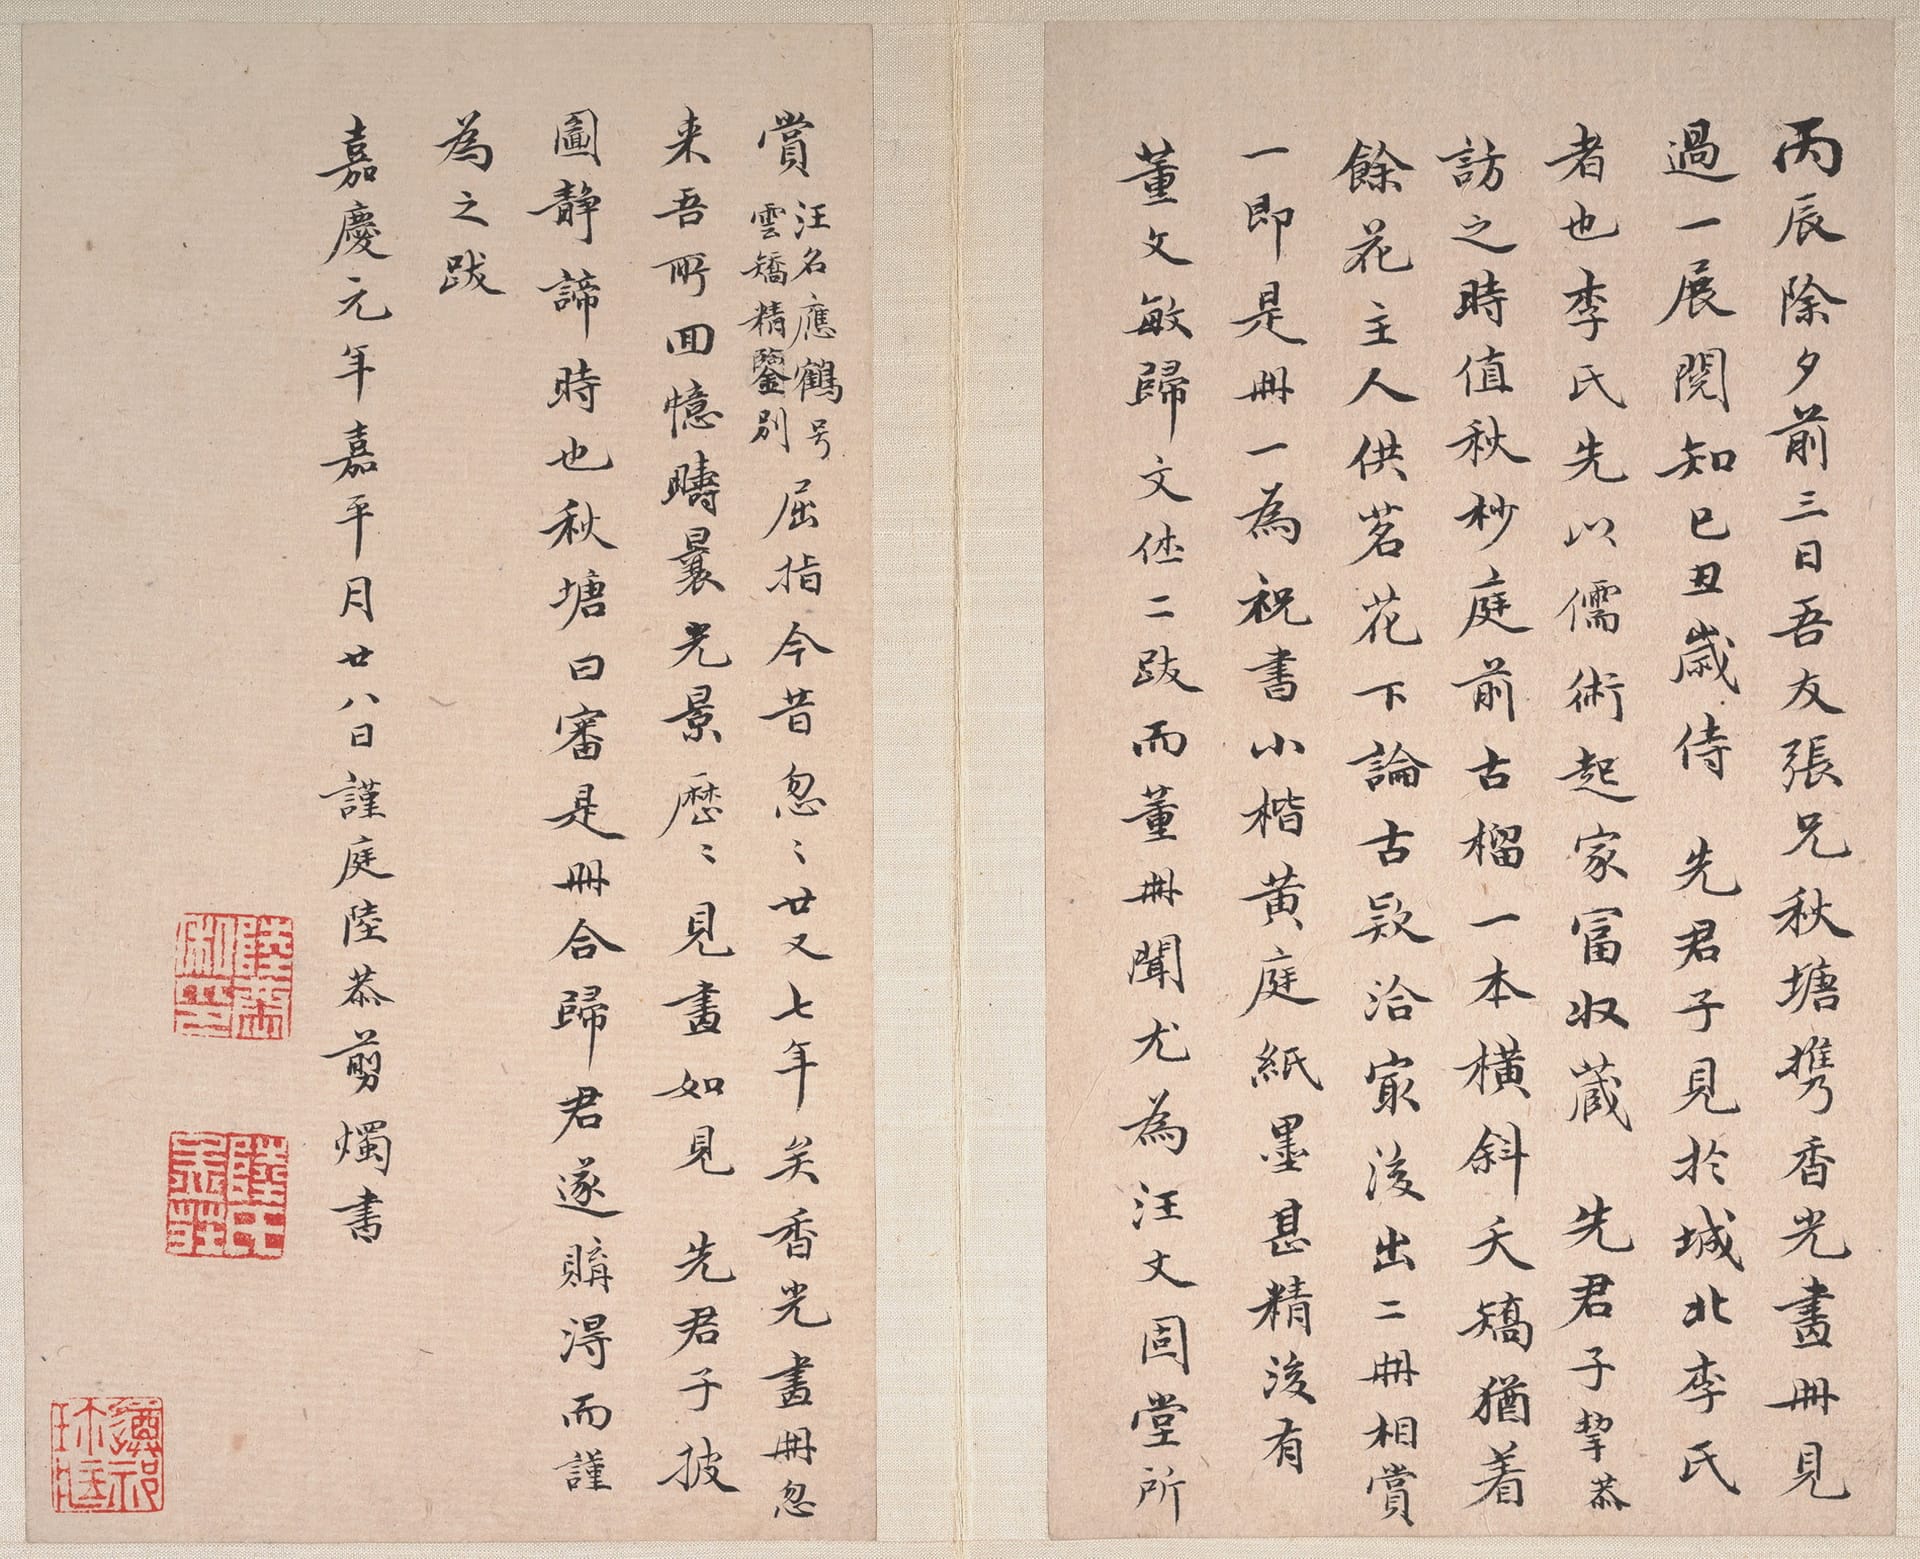 丙辰除夕前三日吾友張兄秋塘攜香光畫冊見
過一展閱知己丑歲侍 先君子見於城北李氏
者也李氏先以儒術起家富收蔵 先君子挈恭
訪之時值秋杪庭前古榴一本橫斜夭矯猶着
餘花主人供茗花下論古欵洽冣後出二冊相賞
一即是冊一為祝書小楷黃庭紙墨甚精後有
董文敏歸文休二跋而董冊聞尤為汪文固堂所
賞 汪名應鶴号
雲矯精鑒別 屈指今昔忽〻廿又七年矣香光畫冊忽
来吾所回憶疇曩光景歷〻見畫如見 先君子披
圖静諦時也秋塘曰審是冊合歸君遂購淂而謹
為之跋
嘉慶元年嘉平月廿八日謹庭陸恭剪燭書